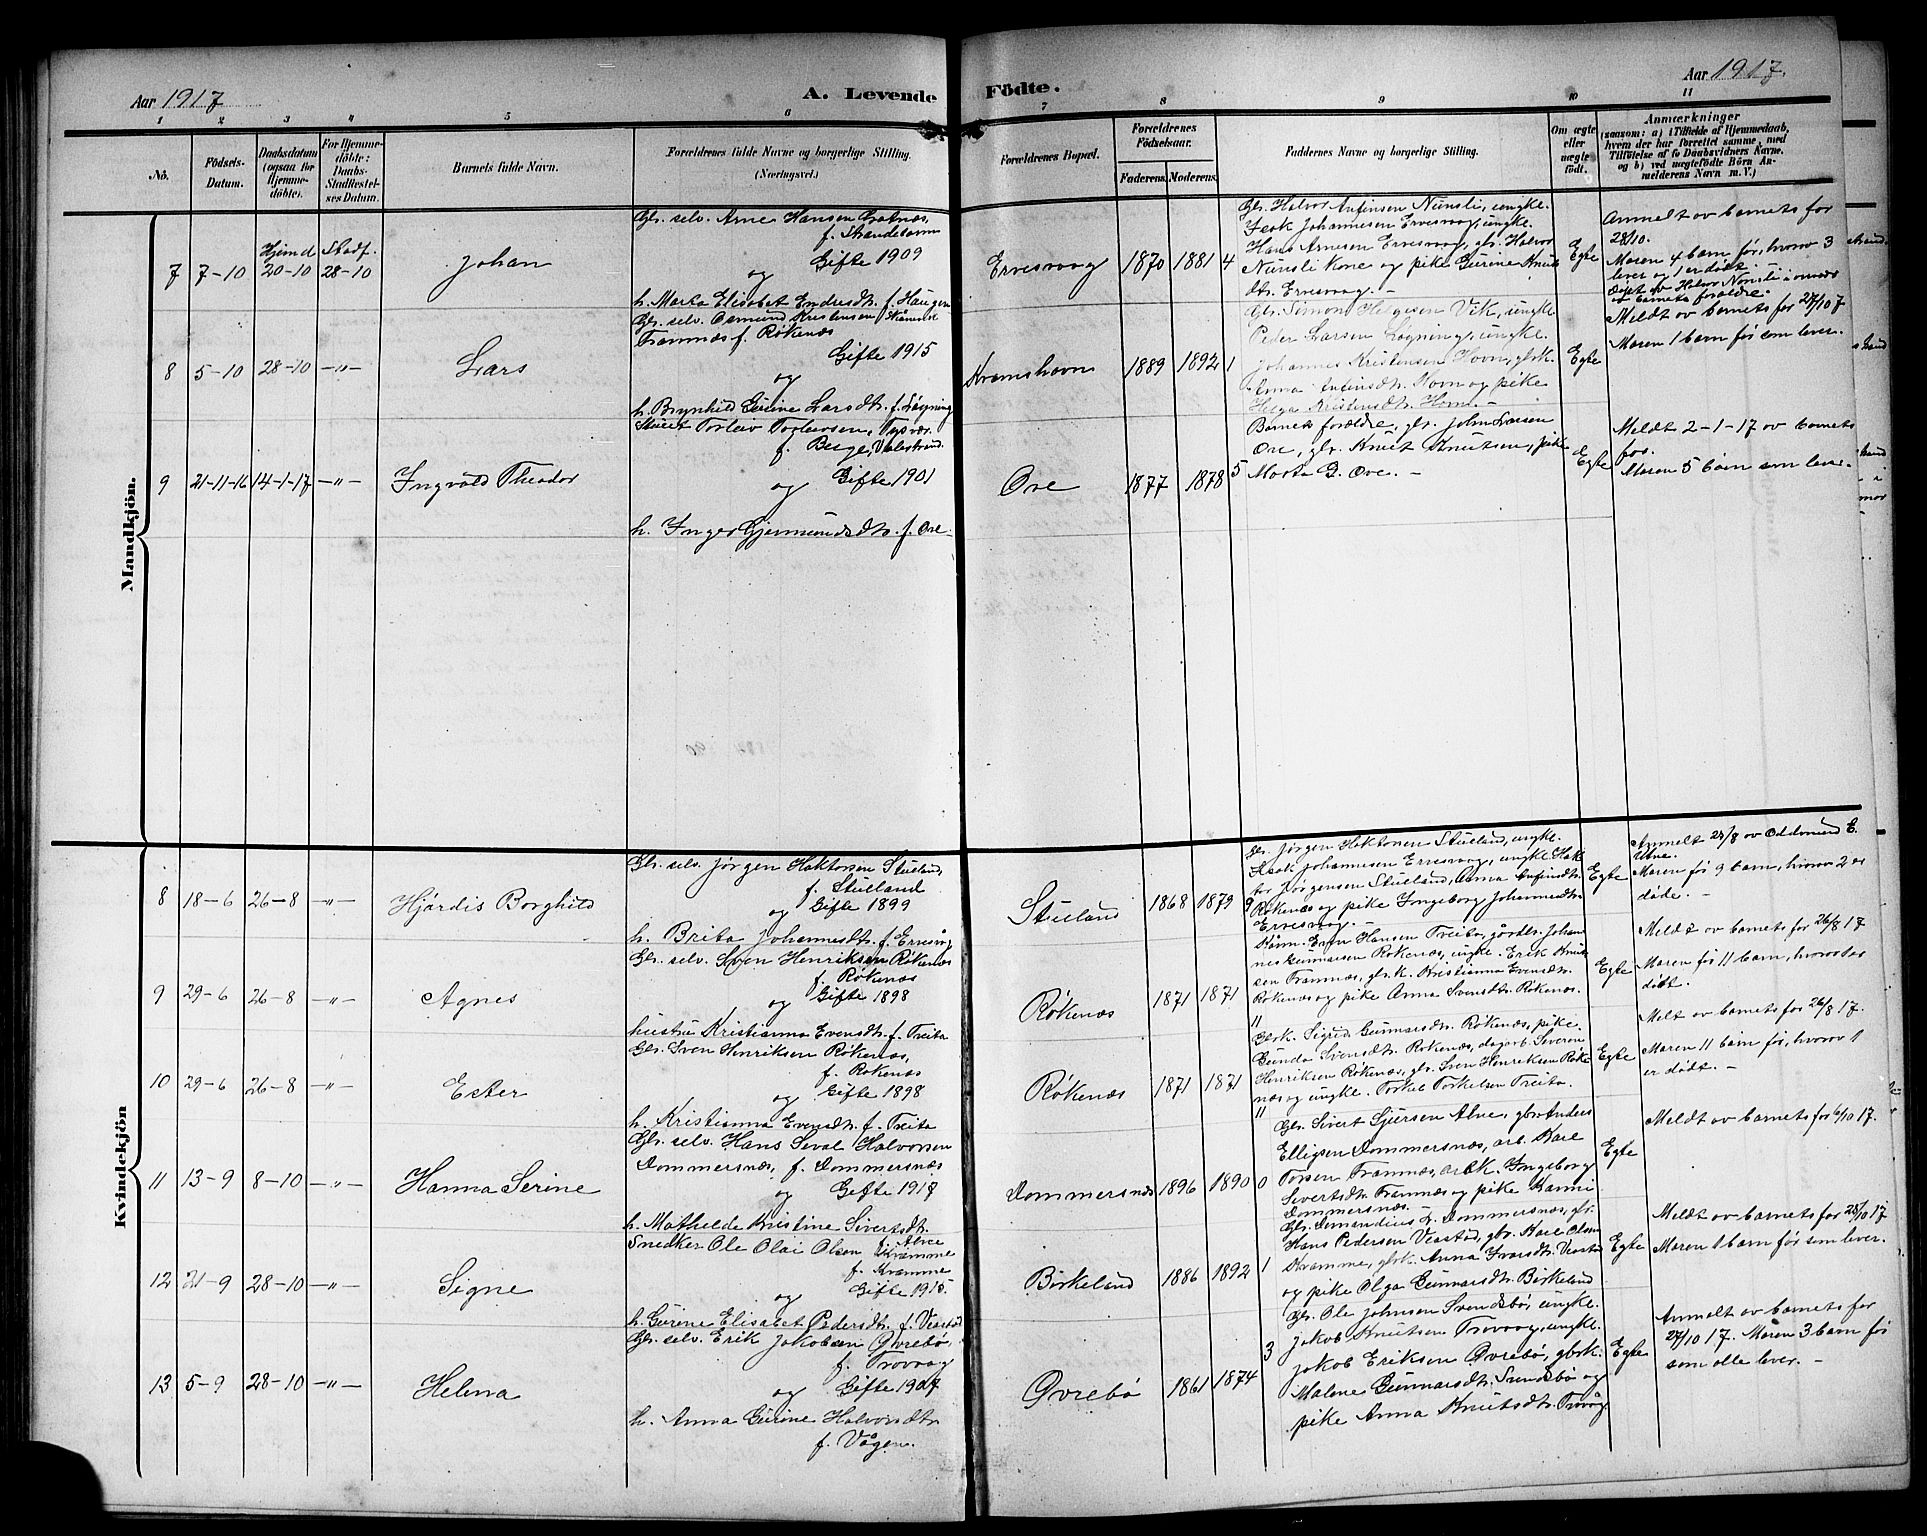 Aar 1917
A. Levende Födte.
Aar 1917.
1 2 3 4 5 6 7 8 9 10 11
No.
Födsels-Datum.
Daabsdatum (ogsaa for Hjemmedöbte).
For Hjemmedöbte: Daabs-Stadfæstelses Datum.
Barnets fulde Navn.
Forældrenes fulde Navne og borgerlige Stilling.
(Næringsvei.)
Forældrenes Bopæl.
Forældrenes Fødselsaar.
Faderens. Moderens.
Faddernes Navne og borgerlige Stilling.
Om ægte eller uægte født.
Anmærkninger
(saasom: a) i Tilfælde af Hjemmedaab, hvem der har forrettet samme, med Tilföielse af to Daabsvidners Navne, og b) ved uægtefödte Börn Anmelderens Navn m. V.)
Mandkjön.
7 7-10 Hjemd 20-10 Stadf. 28-10 Johan
Gbr. selv. Arne Hansen
f. Strandesarm
Gifte 1909
og
h. Marta Elisabet Endresdtr. f. Haugen
Ervesvaag 1870 1881 4
Gbr. Halvor Anfinsen Nunsli, ungk.
Isak Johannesen Ervesvaag, ungk.
Hans Arnesen Ervesvaag, gbr. Halvor
Nunsli kone og pike Gurine Knuts
dtr. Ervesvaag. -
Egte
Anmelt ov barnets far
28/10.
Moren 4 barn før, hvorov 3
lever og 1 er dødt
Døpt ov Halvor Nunsli i nærvær
ov barnets forældre.
8 5-10 28-10 -"- Lars
Gbr. selv. Osmund Kristensen
Framnæs f. Røkenæs
Gifte 1915
og
h. Brynhild Gurine Larsdtr. f. Løgning
Kramshavn 1889 1892 1
Gbr. Simon Helgesen Vik, ungk.
Peder Larsen Løgning, ungk.
Johannes Kristensen Hovn, gbrk.
Anna Anfinsdtr. Hovn og pike
Helga Kristensdtr. Hovn. -
Egte
Meldt ov barnets far 27/10 17
Moren 1 barn før som lever.
9 21-11-16 14-1-17 -"- Ingvald Theodor
Torlav Torlavsen, Tysvær.
f. Berge, Valestrand.
Gifte 1901
og
h. Inger Gjermundsdtr. f. Øre
Øre 1877 1878 5
Barnets forældre, gbr. John Larsen
Øre, gbr. Knut Knutsen, pike
Marta G. Øre. -
Egte
Meldt 2-1-17 ov barnets
far.
Moren 5 barn som lever.
Kvindekjön
8 18-6 26-8 -"- Hjørdis Borghild
Gbr. selv. Jørgen Haktorsen Stueland
f. Stueland
Gifte 1899
og
h. Brita Johannesdtr. f. Ervesvåg
Stueland 1868 1879 9
Gbr. Jørgen Haktorsen Stueland, ungk.
Isak Johannesen Ervesvaag, ungk. Hak
tor Jørgensen Stueland, Anna Anfindtr.
Røkenæs og pike Ingeborg Johannesdtr.
Ervesvaag.
Egte
Anmelt 27/8 ov Oddmund E.
Utne.
Moren før 9 barn, hvorov 2 er
døde.
9 29-6 26-8 -"- Agnes
Gbr. selv. Sven Henriksen Røkenæs
f. Røkenæs
Gifte 1898
og
hustru Kristianna Evensdtr. f. Treita
Røkenæs 1871 1871 11
Even Hansen Treita, gårdbr. Johan
nes Gunnarsen Røkenæs, ungk. Erik Knut
sen Framnæs, gbrk. Kristianna Evensdtr.
Røkenæs og pike Anna Svensdtr. Røkenæs.
Egte
Meldt ov barnets far 26/8 17
Moren før 11 barn, hvorov 1 er
dødt.
10 29-6 26-8 -"- Ester
Gbr. Sven Henriksen Røkenæs,
f. Røkenæs
Gifte 1898
og
h. Kristianna Evensdtr. f. Treita
Røkenæs 1871 1871 11
Gbrk. Sigrid Gunnarsdtr. Røkenæs, pike
Gunda Svensdtr. Røkenæs, dagarb. Severin
Henriksen Røkenæs, gbr. Sven Henriksen Røke
næs og ungk. Torkel Torkelsen Treita.
Egte
Melt ov barnets far 26/8 17.
Moren 11 barn før, hvorov 1
er dødt. -
11 13-9 8-10 -"- Hanna Serine
Gbr. selv. Hans Seval Halvorsen
Dommersnæs, f. Dommersnæs
og Gifte 1917
h. Mathelde Kristine Sivertsdtr.
f. Alne
Dommersnæs 1896 1890 0
Gbr. Sivert Gjersen Alne, gbr. Anders
Elligsen Dommersnæs, arb. Kare
Torsen Framnæs, arbk. Ingeborg
Sivertsdtr. Framnæs og pike Kanni
Dommersnæs.
Egte
Meldt ov barnets far 6/10 17.
12 21-9 28-10 -"- Signe
Snedker Ole Olai Olsen Kramme
f. Kramme
Gifte 1915.
og
h. Gurine Elisabet Pedersdtr. f. Veastad
Birkeland 1886 1892 1
Gbr. Domandius L. Dommersnæs, gbr.
Hans Pedersen Veastad, gbr. Kare Olsen
Kramme, gbrk. Anna Ivarsdtr. Veastad
og pike Olga Gunnarsdtr. Birkeland
Egte
Meldt ov barnets far 28/10 17
Moren 1 barn før som lever.
13 5-9 28-10 -"- Helena
Gbr. selv. Erik Jakobsen Øvrebø,
f. Trovaag
og Gifte 1907
h. Anna Gurine Halvorsdtr.
f. Vågen.
Øvrebø 1861 1874 3
Gbr. Ole Johnsen Svendsbø, ungk.
Jakob Knutsen Trovaag, ungk.
Jakob Eriksen Øvrebø, gbrk.
Malene Gunnarsdtr. Svendsbø og
pike Anna Knutsdtr. Trovåg
Egte
Anmelt ov barnets far
27/10 17. Moren 3 barn før
som alle lever. -